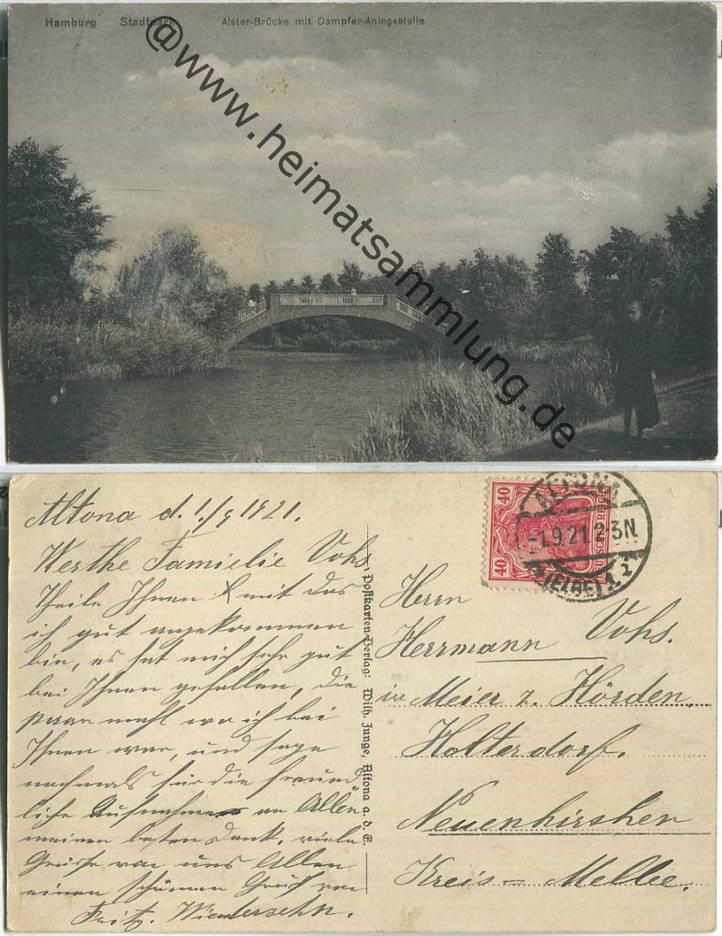 Hamburg Stadtpark Alster-Brücke mit Dampfer-Anlegestelle
@www.heimatsammlung.de
Altona d. 1./9 1921.
Werthe Familie Vohs
Theile Ihnen mit das
ich gut angekommen
bin, es hat mich sehr gut
bei Ihnen gefallen, die
paar mahl wo ich bei
Ihnen war, und sage
nochmals für die freund
liche Aufnahme an Allen
meinen besten Dank, viele
Grüsse von uns Allen
einen schönen Gruß von
Fritz. Wiedersehn.
Postkarten-Verlag: Wilh. Junge, Altona a. d. E.
40 40
DEUTSCHES REICH
ALTONA
-1.9.21 2-3N
(ELBE) 1
Herrn
Herrmann Vohs.
in Meier z. Hörden
Holterdorf.
Neuenkirchen
Kreis = Melle.